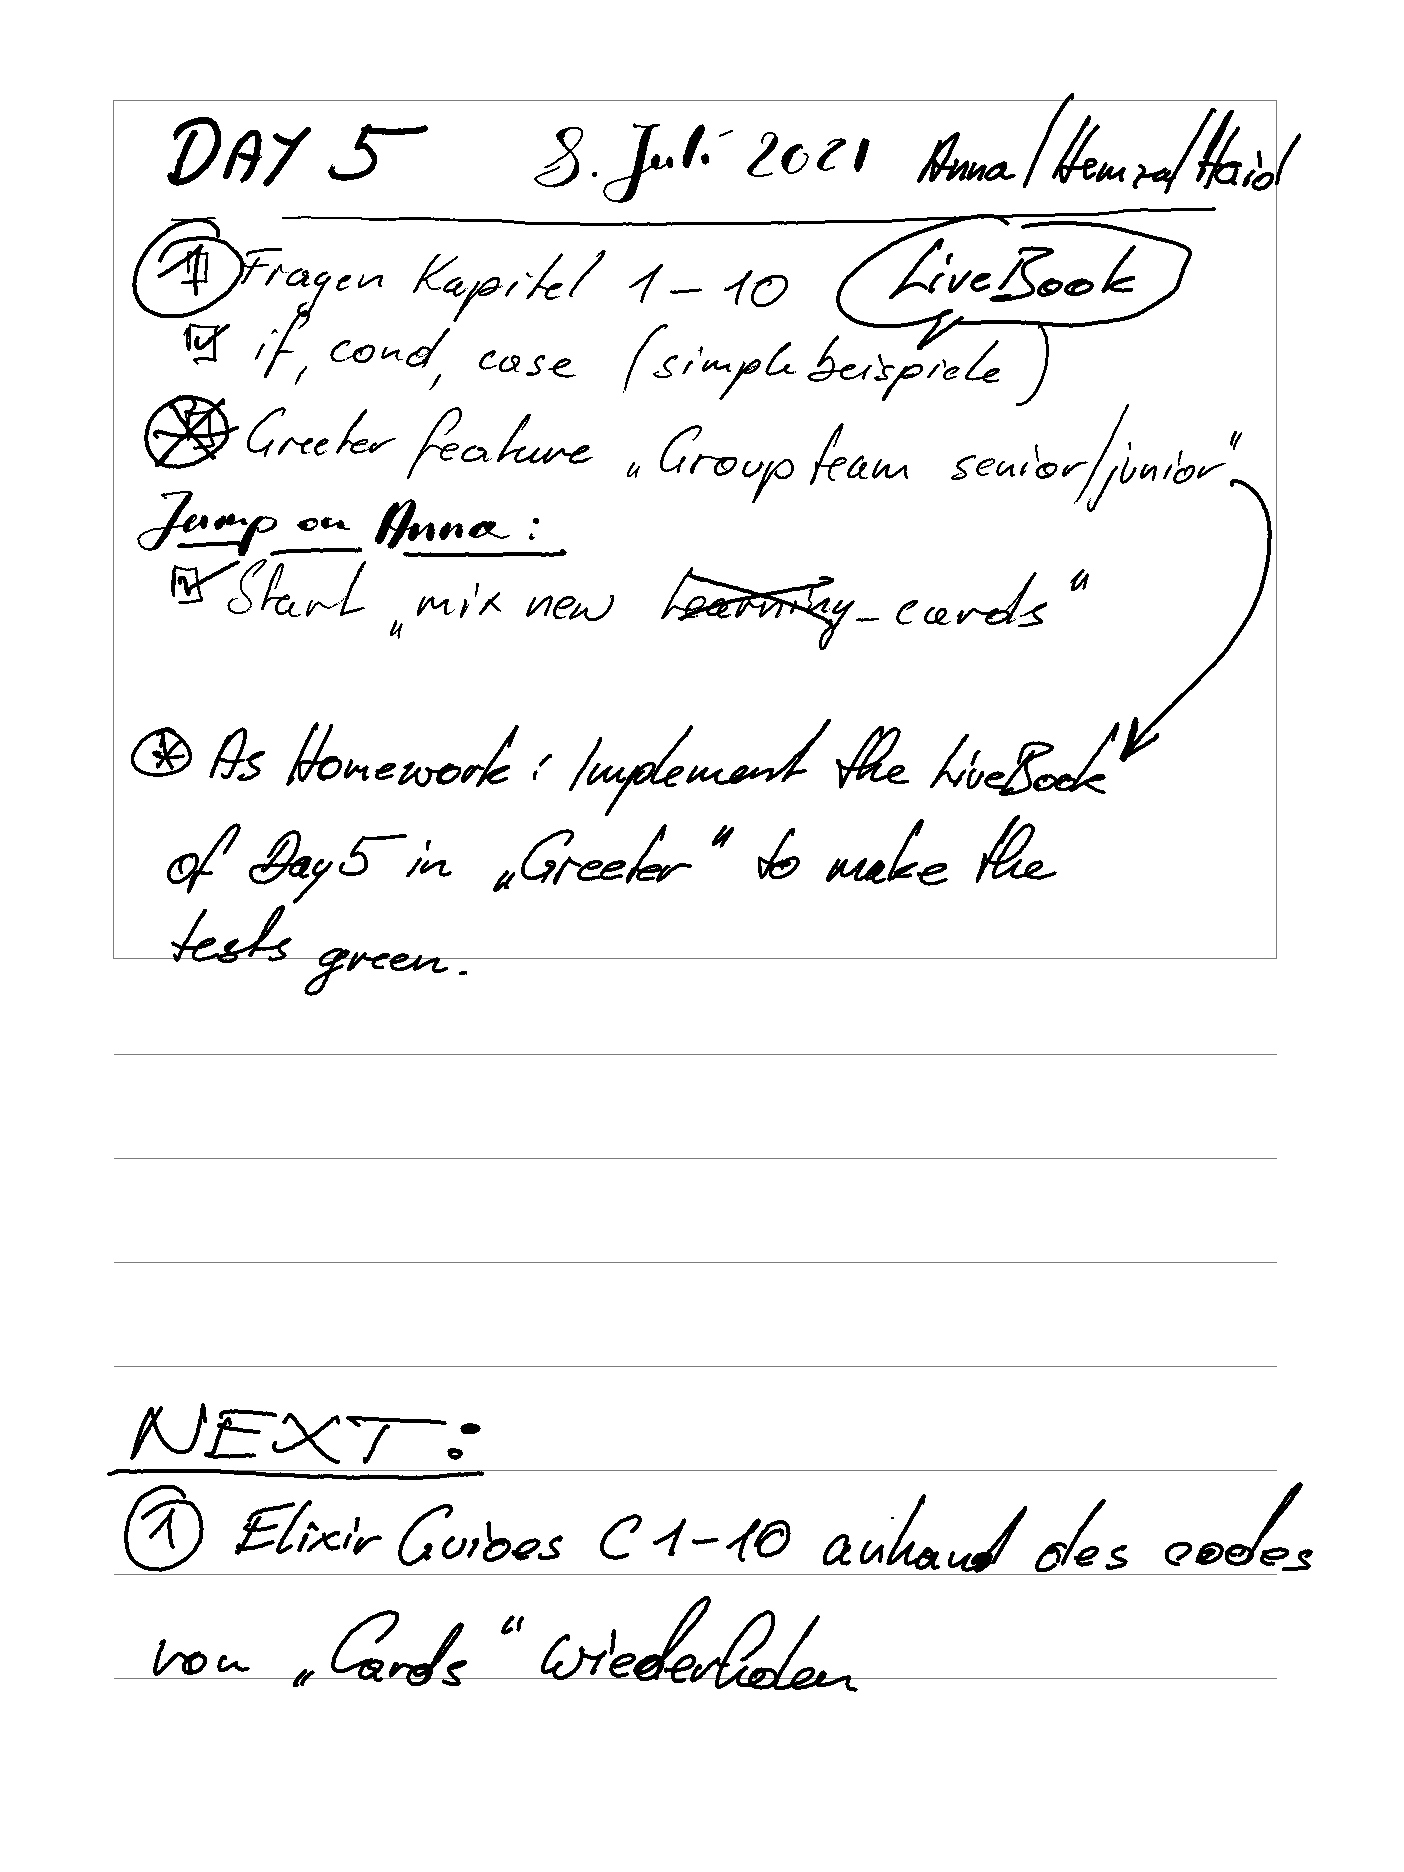 DAY 5 8. Juli 2021 Anna/Hamza/Haid
1 Fragen Kapitel 1-10 LiveBook
if, cond, case (simple beispiele)
Greeter feature „Group team senior/junior“
Jump on Anna:
Start „mix new learning_cards“
* As Homework: Implement the LiveBook
of Day5 in „Greeter“ to make the
tests green.
NEXT:
1 Elixir Guides C 1-10 anhand des codes
von „Cards“ wiederholen